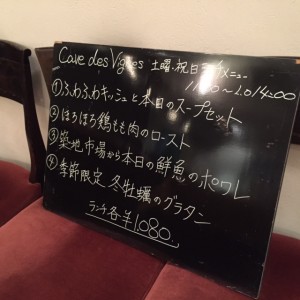 Cave des Vignes 土曜、祝日ランチメニュー
11:30〜L.O14:00
①ふわふわキッシュと本日のスープセット
②ほろほろ鶏もも肉のロースト
③築地市場から本日の鮮魚のポワレ
④季節限定 冬牡蠣のグラタン
ランチ各¥1,080.